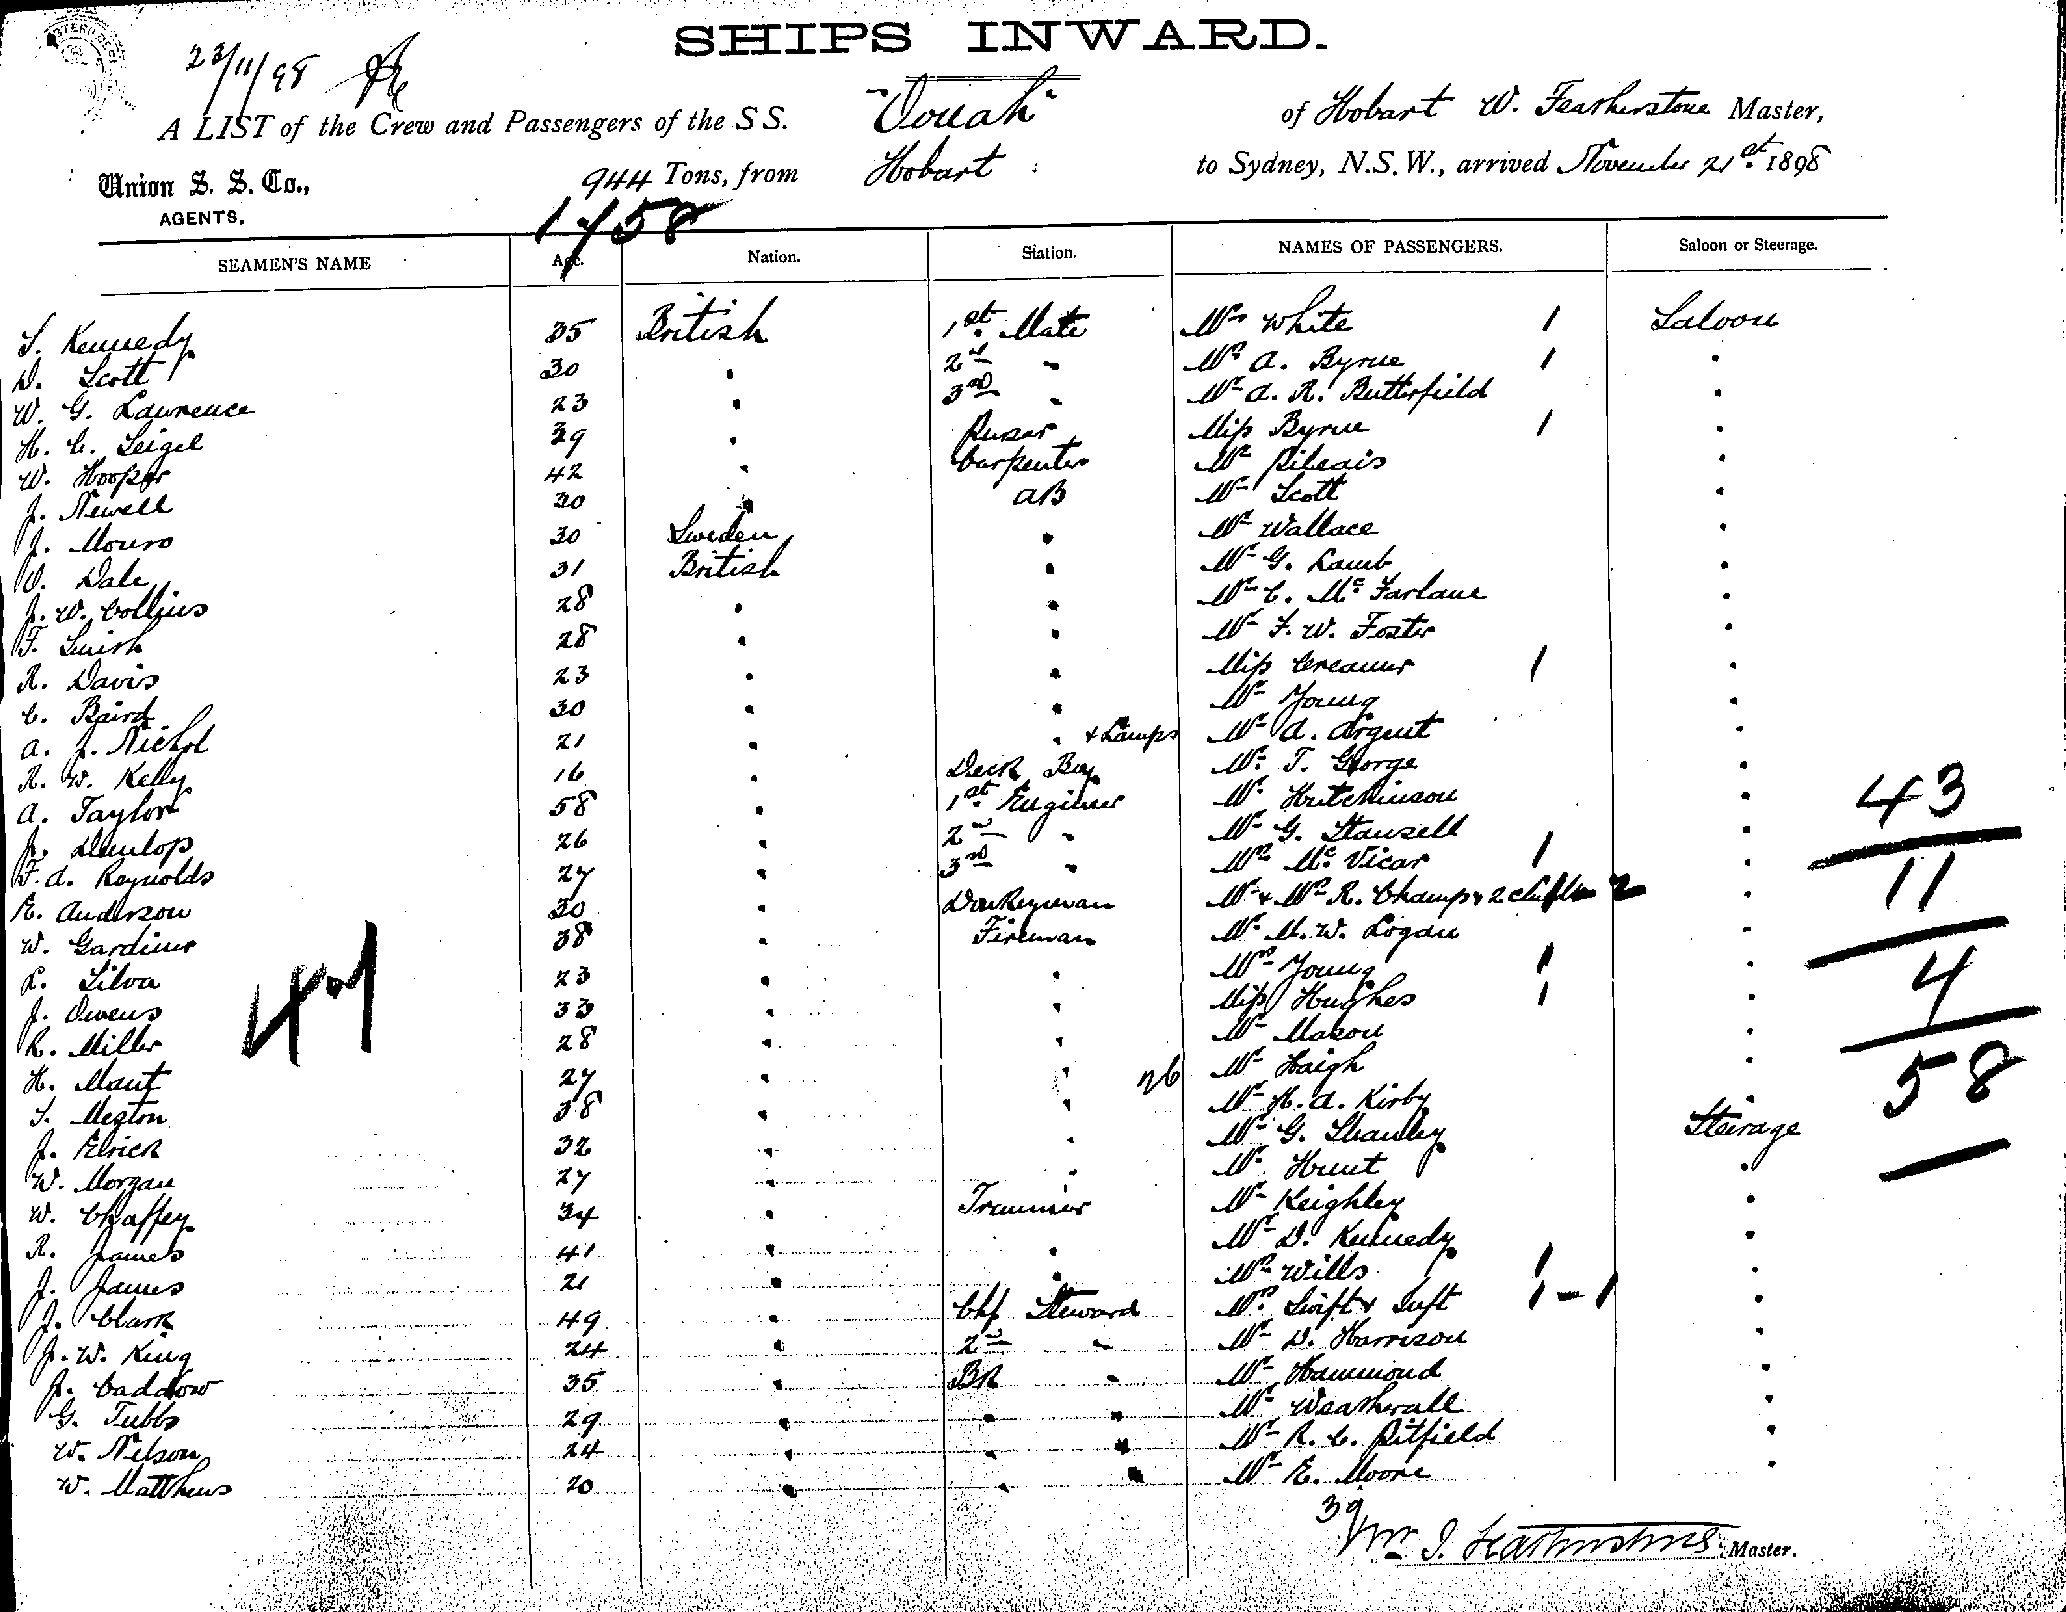 SHIPS INWARD.
23/11/98
A LIST of the Crew and Passengers of the S S. "Oonah" of Hobart W. Featherstone Master,
Union S. S. Co., 944 Tons, from Hobart to Sydney, N.S.W., arrived November 21st 1898
AGENTS.
1/58
SEAMEN'S NAME Age. Nation. Station. NAMES OF PASSENGERS. Saloon or Steerage.
S. Kennedy 35 British 1st Mate Mr White 1 Saloon
D. Scott 30 " 2nd " Mrs A. Byrne 1 "
W. G. Lawrence 23 " 3rd " Mr A. R. Butterfield "
H. C. Seigel 39 " Purser Miss Byrne 1 "
W. Hooper 42 " Carpenter Mr "
J. Newell 30 " AB Mr Scott "
J. Monro 30 Sweden " Mr Wallace "
O. Dale 31 British " Mr G. Lamb "
J. W. Collins 28 " " Mr C. McFarlane "
F. Smith 28 " " Mr F. W. Foster "
R. Davis 23 " " Miss Creamer 1 "
C. Baird 30 " " Mr Young "
A. J. Nichol 21 " " & Lamps Mr A. Argent "
R. W. Kelly 16 " Deck Boy Mr T. George "
A. Taylor 58 " 1st Engineer Mr Hutchinson "
J. Dunlop 26 " 2nd " Mr G. Stansell "
F. A. Reynolds 27 " 3rd " Mrs McVicar 1 "
E. Anderson 30 " Donkeyman Mr & Mrs R. Champ & 2 children 2 "
W. Gardiner 38 " Fireman Mr M. W. Logan "
L. Silva 23 " " Mrs Young 1 "
J. Owens 33 " " Miss Hughes 1 "
R. Miller 28 " " Mr Mason "
H. Mant 27 " " 26 Mr Haigh "
S. Meston 38 " " Mr H. A. Kirby "
J. Elrick 32 " " Mr G. Stanley Steerage
W. Morgan 27 " " Mr Hunt "
W. Chaffey 34 " Trimmer Mr Keighley "
R. James 41 " " Mr D. Kennedy "
J. James 21 " " Mrs Wills 1 "
J. Clark 49 " Chf Steward Mrs Swift & Inft 1 - 1 "
J. W. King 24 " 2nd " Mr D. Harrison "
J. Caddow 35 " BR " Mr Hammond "
G. Tubbs 29 " " " Mr Weatherall "
W. Nilson 24 " " " Mr R. C. Pitfield "
W. Matthews 20 " " " Mr E. Moore "
43
11
4
58
39
Wm J. Featherstone Master.